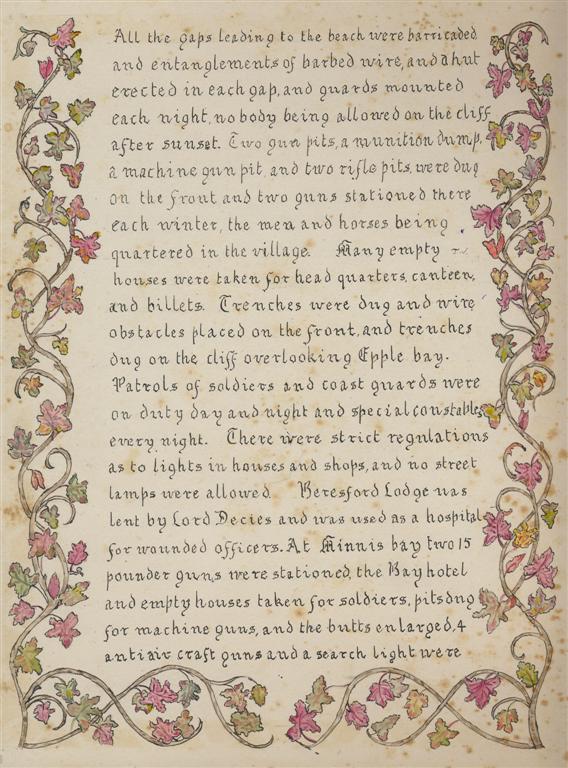 All the gaps leading to the beach were barricaded
and entanglements of barbed wire, and a hut
erected in each gap, and guards mounted
each night, no body being allowed on the cliff
after sunset. Two gun pits, a munition dump,
a machine gun pit, and two rifle pits, were dug
on the front and two guns stationed there
each winter, the men and horses being
quartered in the village. Many empty
houses were taken for head quarters, canteen,
and billets. Trenches were dug and wire
obstacles placed on the front, and trenches
dug on the cliff overlooking Epple bay.
Patrols of soldiers and coast guards were
on duty day and night and special constables
every night. There were strict regulations
as to lights in houses and shops, and no street
lamps were allowed. Beresford Lodge was
lent by Lord Decies and was used as a hospital
for wounded officers. At Minnis bay two 15
pounder guns were stationed, the Bay hotel
and empty houses taken for soldiers, pits dug
for machine guns, and the butts enlarged, 4
antiair craft guns and a search light were